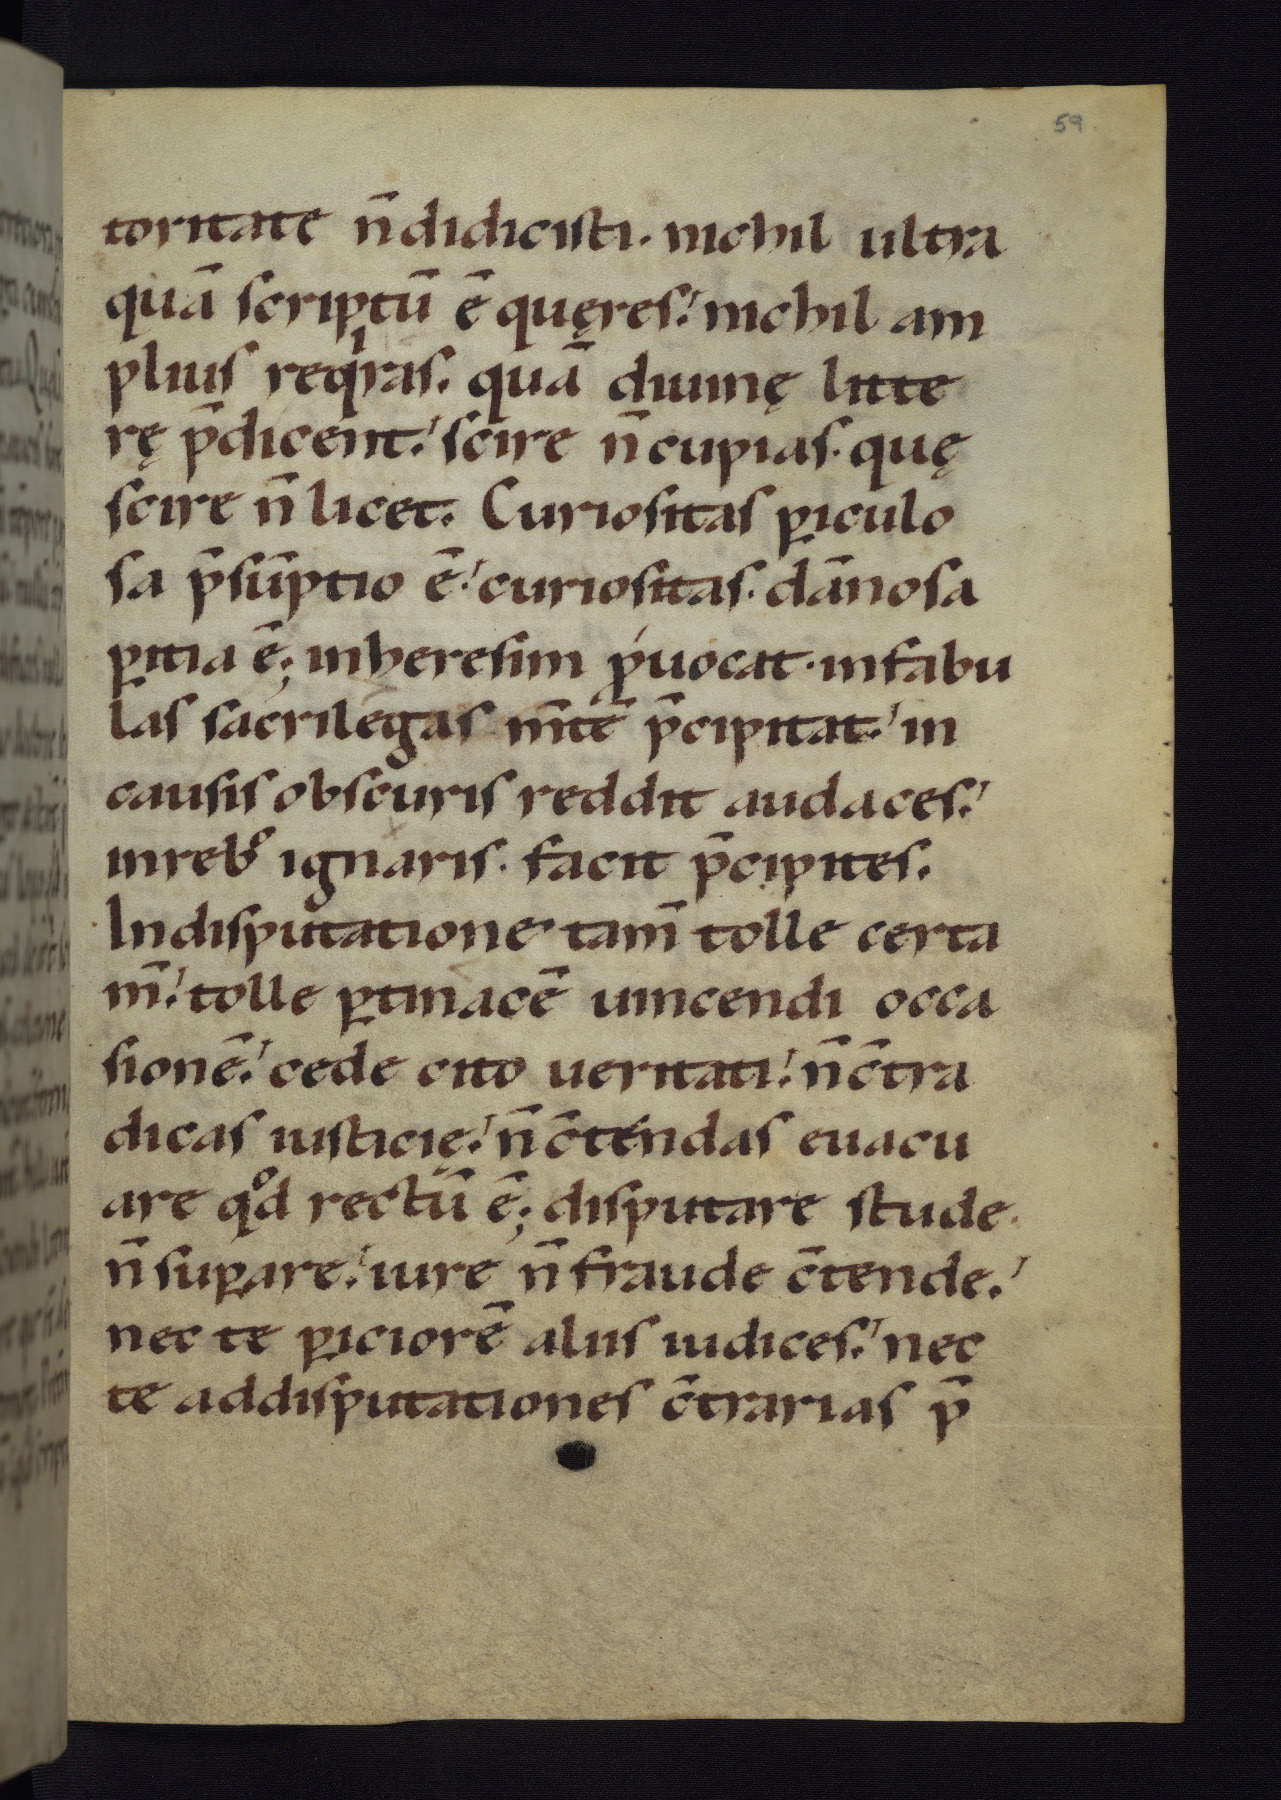 59
toritate n̄ didicisti. nichil ultra
quā scriptū ē quęres. nichil am
plius reqͥras. quā diuinę litte
rę p̄dicent. scire n̄ cupias. quę
scire n̄ licet. Curiositas ꝑiculo
sa p̄sūptio ē. curiositas. dānosa
ꝑitia ē; inheresim ꝓuocat. infabu
las sacrilegas m̄te p̄cipitat. in
causis obscuris reddit audaces.
inreb; ignaris. facit p̄cipites.
Indisputatione tam̄ tolle certa
m̄. tolle ꝑtinacē uincendi occa
sionē. cede cito ueritati. n̄ c̄tra
dicas iusticię. n̄ c̄tendas euacu
are qͦd rectū ē; disputare stude.
n̄ suꝑare. iure n̄ fraude c̄tende.
nec te ꝑiciorē aliis iudices. nec
te addisputationes c̄trarias p̄